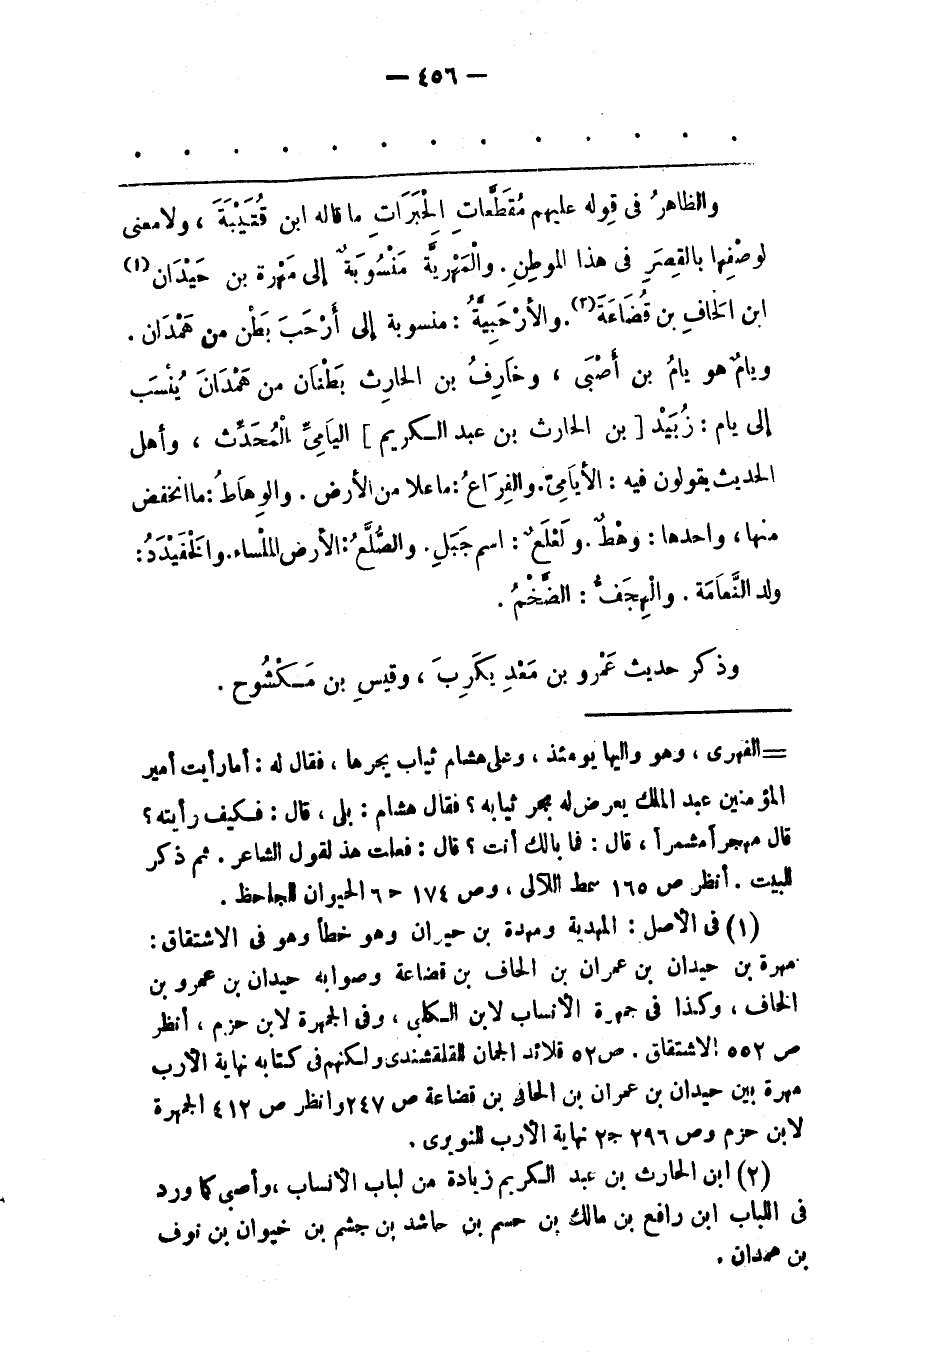 — ٤٥٦ —
. . . . . . . . . . . . .
والظاهرُ فى قوله عليهم مُقَطَّعاتِ الِحْبَرَاتِ ما قاله ابن قُتَيْبَةَ ، ولا معنى
لوصْفِها بالقِصَرِ فى هذا الموطِنِ . والَمَهْرِيَّة مَنْسُوَبةٌ إلى مَهْرة بن حَيْدَان (١)
ابن الَحافِ بن قُضَاعَةَ (٢) . والأرْحَبِيةَُّ : منسوبة إلى أَرْحَبَ بَطْن من هَمْدَان .
ويامٌ هو يامُ بن أَصْبَى ، وخارِفُ بن الحارِث بَطْنَان من هَمْدَانَ يُنْسَب
إلى يام : زُبَيْد [ بن الحارث بن عبد الكريم ] اليَامِىِّ الْمُحَدِّث ، وأهل
الحديث يقولون فيه : الأيَامِىّ . والفِرَاعُ : ما علا من الأرض . والوِهَاطُ : ما انخفض
منها ، واحدها : وهْطٌ . ولَعْلَعٌ : اسم جَبَلٍ . والصُّلَّعُ : الأرض الملْساء . والَخْفَيْدَدُ :
ولد النَّعَامَة . والْهِجَفُّ : الضَّخْمُ .
وذكر حديث عَمْرو بن مَعْدِ يكَرِبَ ، وقيسِ بن مَكْشُوح .
= الفهرى ، وهو واليها يومئذ ، وعلى هشام ثياب يجرها ، فقال له : أما رأيت أمير
المؤمنين عبد الملك يعرض له مجر ثيابه ؟ فقال هشام : بلى ، قال : فكيف رأيته ؟
قال مهجراً مشمراً ، قال : فما بالك أنت ؟ قال : فعلت هذ لقول الشاعر . ثم ذكر
البيت . أنظر ص ١٦٥ سمط اللآلى ، وص ١٧٤ ح ٦ الحيوان للجاحظ .
(١) فى الأصل : المهدية ومهدة بن حيران وهو خطأ وهو فى الاشتقاق :
مهرة بن حيدان بن عمران بن الحاف بن قضاعة وصوابه حيدان بن عمرو بن
الحاف ، وكذا فى جمهرة الأنساب لابن الكلبى ، وفى الجمهرة لابن حزم ، أنظر
ص ٥٥٢ الاشتقاق . ص ٥٢ قلائد الجمان للقلقشندى ولكنهم فى كتابه نهاية الأرب
مهرة بين حيدان بن عمران بن الحافى بن قضاعة ص ٢٤٧ وانظر ص ٤١٢ الجمهرة
لابن حزم وص ٢٩٦ ج٢ نهاية الأرب للنويرى .
(٢) ابن الحارث بن عبد الكريم زيادة من لباب الأنساب ، وأصبى كما ورد
فى اللباب ابن رافع بن مالك بن حسم بن حاشد بن جشم بن خيوان بن نوف
بن همدان .